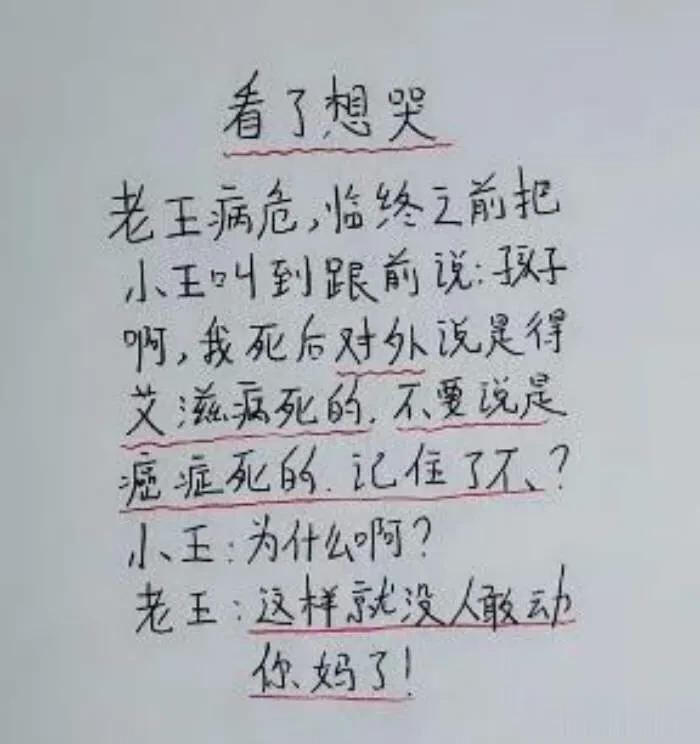 看了想哭
老王病危,临终之前把
小王叫到跟前说:孩子
啊,我死后对外说是得
艾滋病死的.不要说是
癌症死的.记住了不、?
小王:为什么啊?
老王:这样就没人敢动
你妈了!